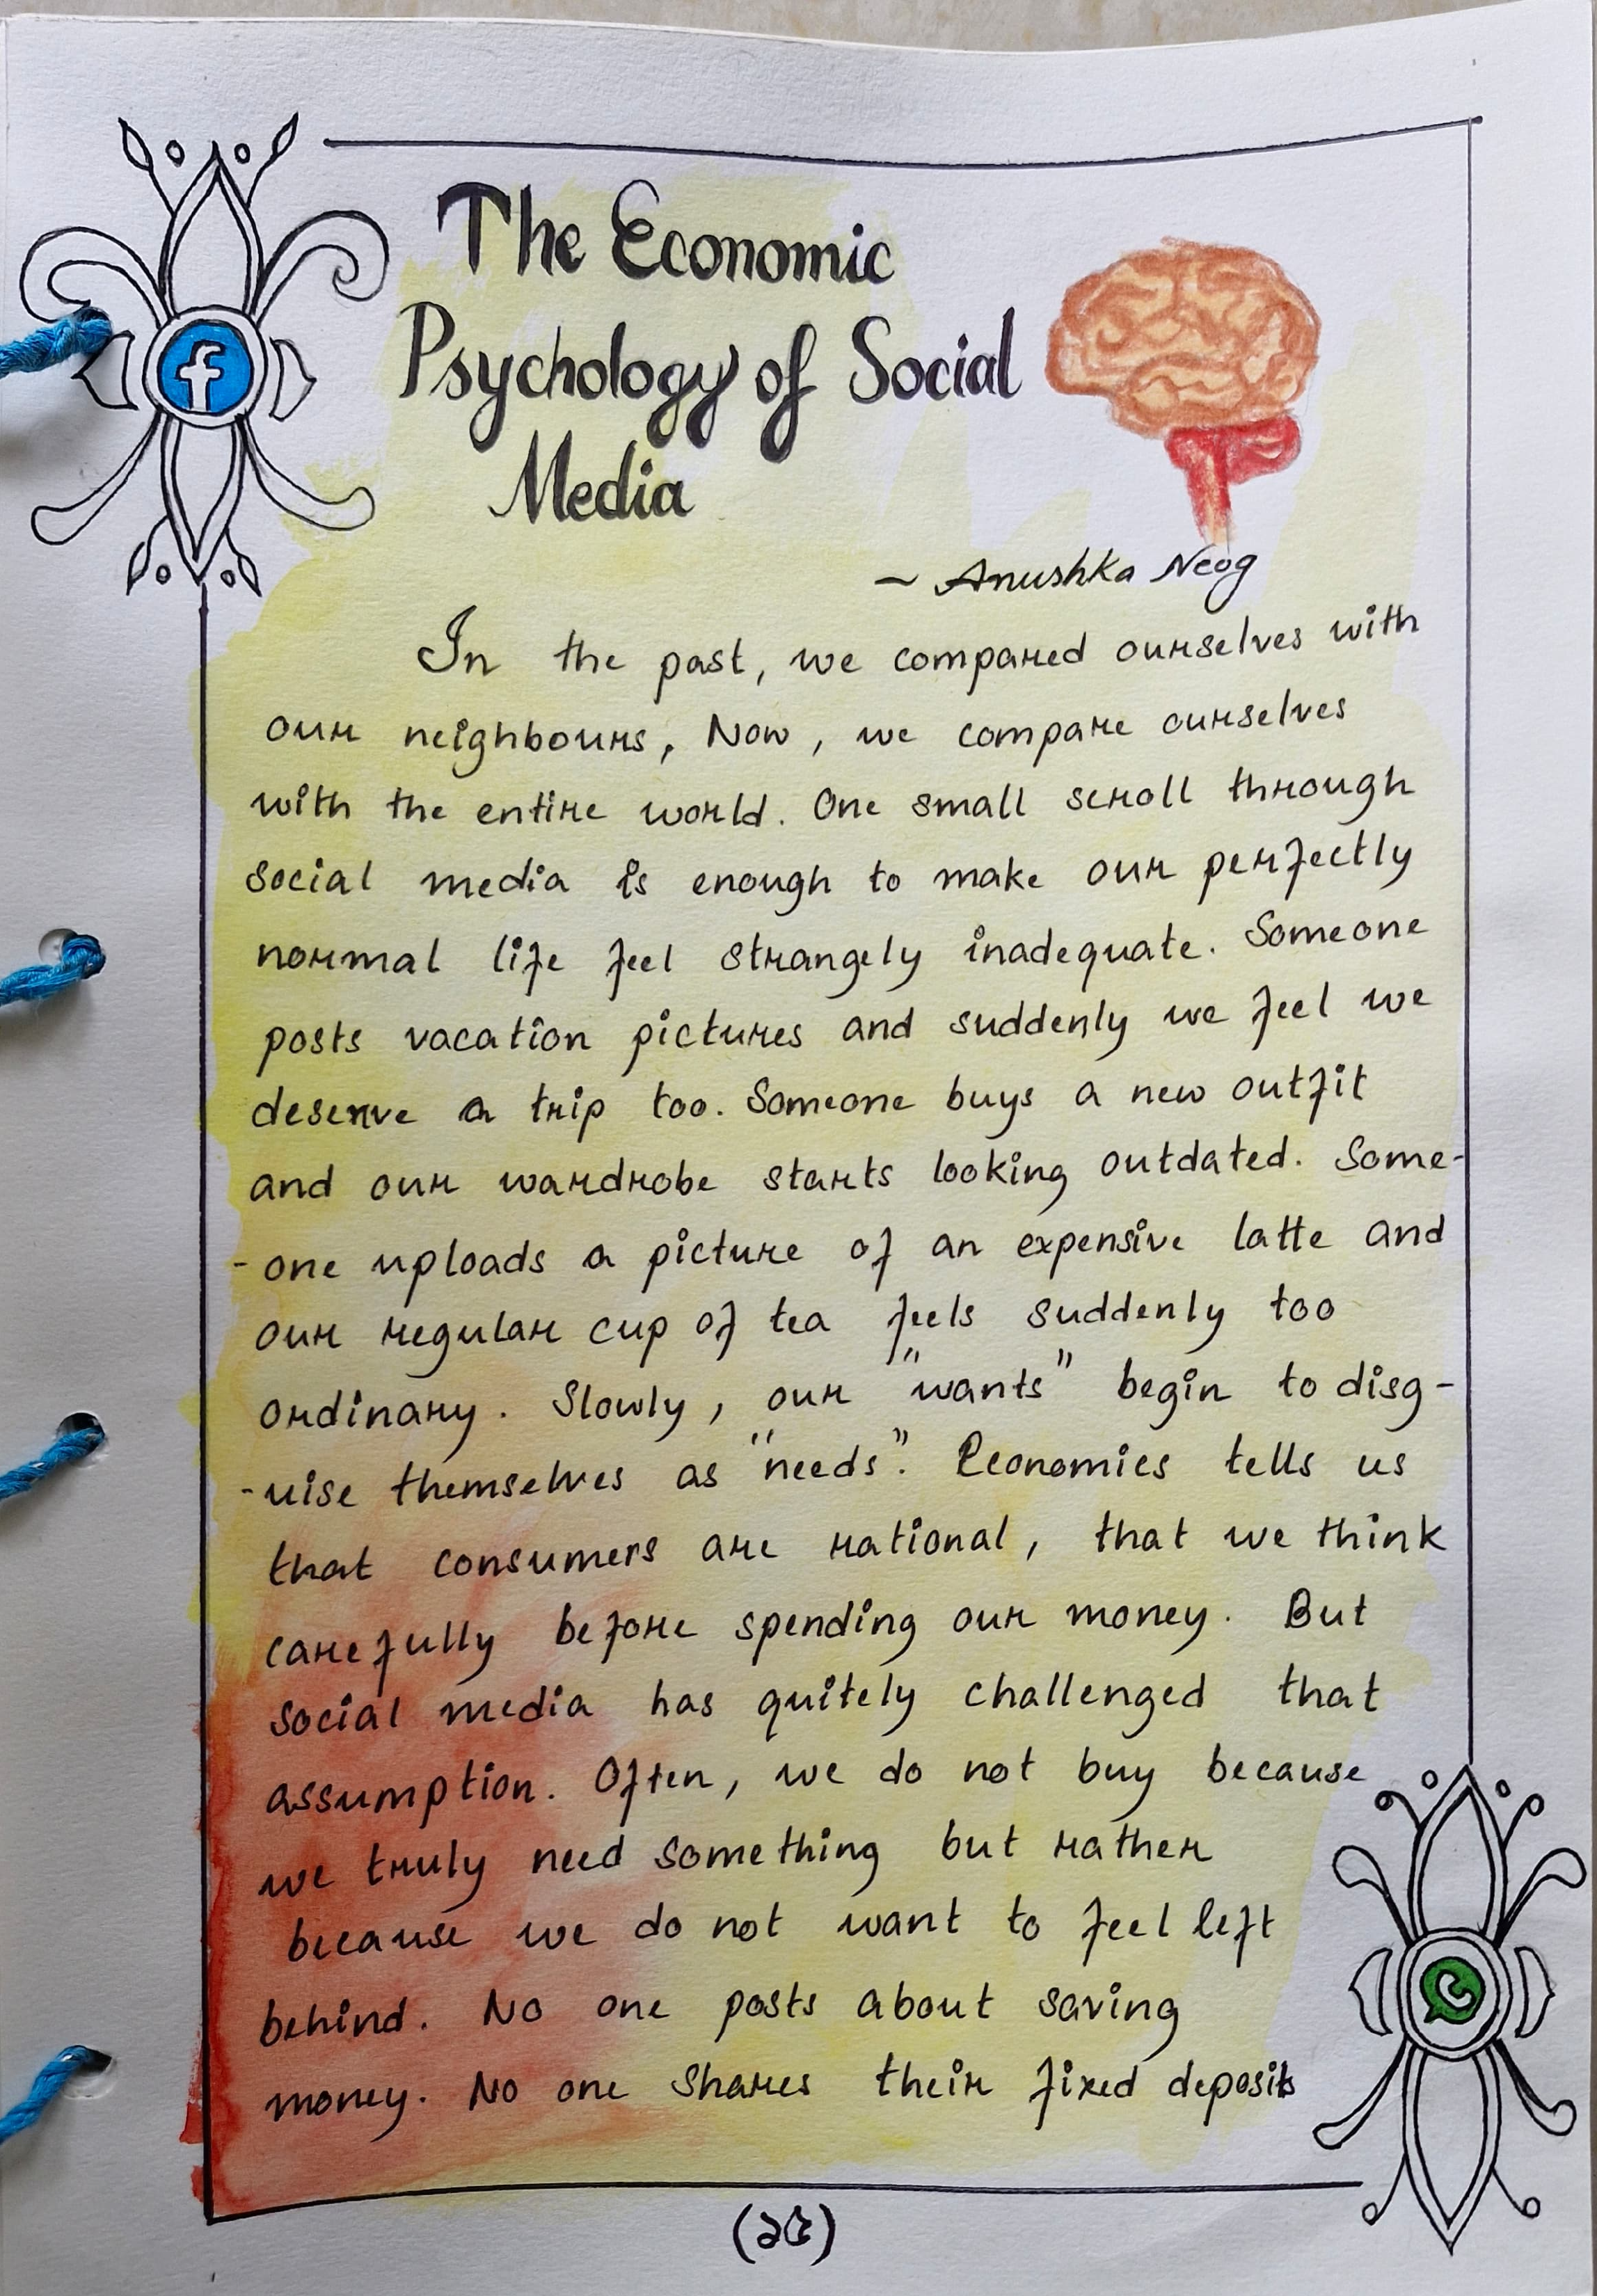 The Economic
Psychology of Social
Media
~ Anushka Neog
In the past, we compared ourselves with
our neighbours, Now, we compare ourselves
with the entire world. One small scroll through
social media is enough to make our perfectly
normal life feel strangely inadequate. Someone
posts vacation pictures and suddenly we feel we
deserve a trip too. Someone buys a new outfit
and our wardrobe starts looking outdated. Some-
-one uploads a picture of an expensive latte and
our regular cup of tea feels suddenly too
ordinary. Slowly, our "wants" begin to disg-
-uise themselves as "needs". Economics tells us
that consumers are rational, that we think
carefully before spending our money. But
social media has quitely challenged that
assumption. Often, we do not buy because
we truly need something but rather
because we do not want to feel left
behind. No one posts about saving
money. No one shares their fixed deposits
(১৫)